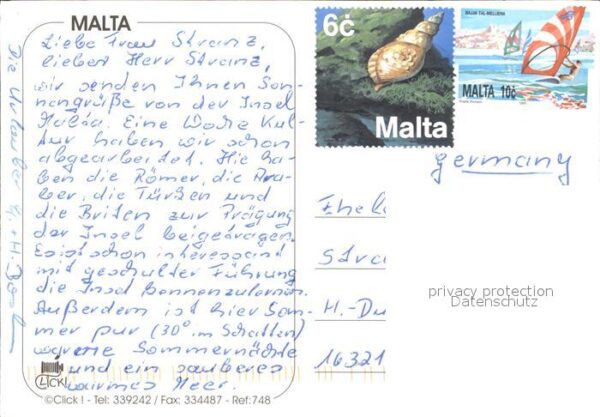 MALTA
Liebe Frau Stranz,
lieber Herr Stranz,
wir senden Ihnen Son-
nengrüße von der Insel
Malta. Eine Woche Kul-
tur haben wir schon
abgearbeitet. Hie ha-
ben die Römer, die Ara-
ber, die Türken und
die Briten zur Prägung
der Insel beigetragen.
Es ist schon interessant
mit geschulter Führung
die Insel kennenzulernen.
Außerdem ist hier Som-
mer pur (30° im Schatten)
warme Sommernächte
und ein sauberes
warmes Meer.
Die Urlauber
CLICK!
©Click ! - Tel: 339242 / Fax: 334487 - Ref:748
6c
Malta
BAJJIA TAL-MELLIEHA
MALTA 10c
Germany
Ehel
Stra
H.-Du
16321
privacy protection
Datenschutz